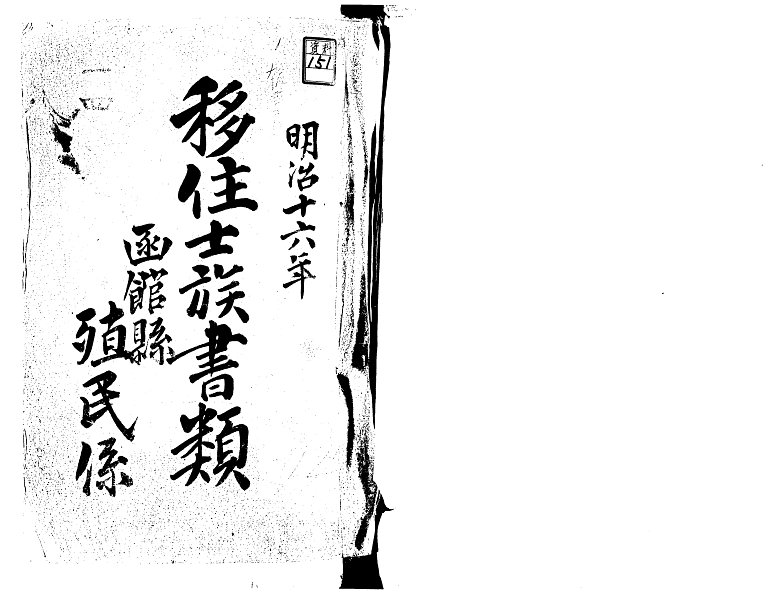 資料
151
明治十六年
移住士族書類
函館縣
殖民係